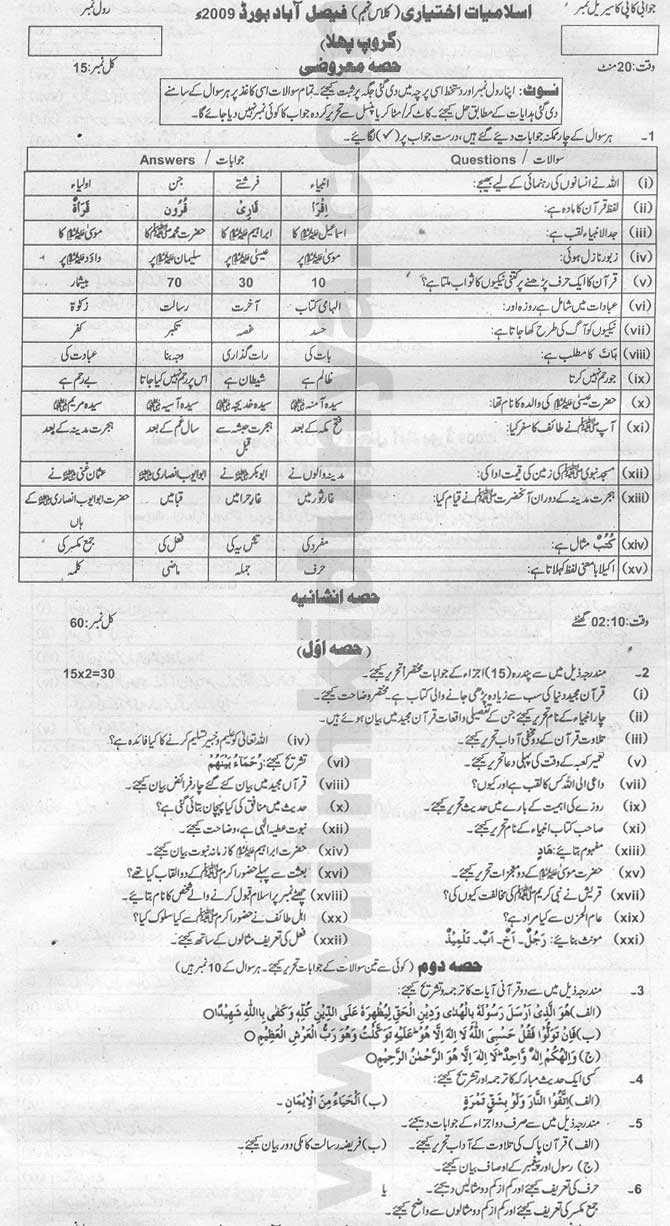 جوابی کاپی کا سیریل نمبر اسلامیات اختیاری (کلاس نہم) فیصل آباد بورڈ 2009ء رول نمبر
گروپ پہلا
حصہ معروضی
وقت: 20 منٹ کل نمبر: 15
نوٹ: اپنا رول نمبر اور دستخط اسی پرچہ میں دی گئی جگہ پر ثبت کیجئے۔ تمام سوالات اسی کاغذ پر ہر سوال کے سامنے
دی گئی ہدایات کے مطابق حل کیجئے۔ کاٹ کر/مٹا کر یا پنسل سے تحریر کردہ جواب کا کوئی نمبر نہیں دیا جائے گا۔
1- ہر سوال کے چار ممکنہ جوابات دیئے گئے ہیں، درست جواب پر (✓) لگائیے۔
سوالات / Questions جوابات / Answers
(i) اللہ نے انسانوں کی رہنمائی کے لیے بھیجے: انبیاء فرشتے جن اولیاء
(ii) لفظ قرآن کا مادہ ہے: اِقْرَأْ قَارِئ قُرُون قَرَأَة
(iii) جدالانبیاء لقب ہے: اسماعیل علیہ السلام کا ابراہیم علیہ السلام کا حضرت محمد ﷺ کا موسیٰ علیہ السلام کا
(iv) زبور نازل ہوئی: موسیٰ علیہ السلام پر عیسیٰ علیہ السلام پر سلیمان علیہ السلام پر داؤد علیہ السلام پر
(v) قرآن کا ایک حرف پڑھنے پر کتنی نیکیوں کا ثواب ملتا ہے؟ 10 30 70 بیشمار
(vi) عبادات میں شامل ہے روزہ اور: الہامی کتاب آخرت رسالت زکوٰۃ
(vii) نیکیوں کو آگ کی طرح کھا جاتا ہے: حسد غصہ تکبر کفر
(viii) بَاتَ کا مطلب ہے: بات کی رات گذاری وجہ بنا عبادت کی
(ix) جو رحم نہیں کرتا ظالم ہے شیطان ہے اس پر رحم نہیں کیا جاتا بے رحم ہے
(x) حضرت عیسیٰ علیہ السلام کی والدہ کا نام تھا: سیدہ آمنہ سیدہ خدیجہ سیدہ آسیہ سیدہ مریم
(xi) آپ ﷺ نے طائف کا سفر کیا: فتح مکہ کے بعد ہجرت حبشہ سے قبل سال غم کے بعد ہجرت مدینہ کے بعد
(xii) مسجد نبوی ﷺ کی زمین کی قیمت ادا کی: مدینہ والوں نے ابوبکر نے ابوایوب انصاری نے عثمان غنی نے
(xiii) ہجرت مدینہ کے دوران آنحضرت ﷺ نے قیام کیا: غار ثور میں غار حرا میں قبا میں حضرت ابوایوب انصاری کے ہاں
(xiv) كُتُبٌ مثال ہے: مفرد کی تثنیہ کی فعل کی جمع مکسر کی
(xv) اکیلا بامعنی لفظ کہلاتا ہے: حرف جملہ ماضی کلمہ
حصہ انشائیہ
وقت: 02:10 گھنٹے کل نمبر: 60
(حصہ اوّل)
2- مندرجہ ذیل میں سے پندرہ (15) اجزاء کے جوابات مختصراً تحریر کیجئے۔ 15x2=30
(i) قرآن مجید دنیا کی سب سے زیادہ پڑھی جانے والی کتاب ہے۔ مختصر وضاحت کیجئے۔
(ii) چار انبیاء کے نام تحریر کیجئے جن کے تفصیلی واقعات قرآن مجید میں بیان ہوئے ہیں۔
(iii) تلاوت قرآن کے دو مخفی آداب تحریر کیجئے۔ (iv) اللہ تعالیٰ کو علیم و خبیر تسلیم کرنے کا کیا فائدہ ہے؟
(v) تعمیر کعبہ کے وقت کی پہلی دعا تحریر کیجئے۔ (vi) تشریح کیجئے: رُحَمَاءُ بَيْنَهُمْ
(vii) داعی الی اللہ کس کا لقب ہے اور کیوں؟ (viii) قرآن مجید میں بیان کیے گئے چار فرائض بیان کیجئے۔
(ix) روزے کی اہمیت کے بارے میں حدیث تحریر کیجئے۔ (x) حدیث میں منافق کی کیا پہچان بتائی گئی ہے؟
(xi) صاحب کتاب انبیاء کے نام تحریر کیجئے۔ (xii) نبوت عطیہ الٰہی ہے، وضاحت کیجئے۔
(xiii) مفہوم بتائیے: هَادٍ (xiv) حضرت ابراہیم علیہ السلام کا زمانہ نبوت بیان کیجئے۔
(xv) حضرت موسیٰ علیہ السلام کے دو معجزات تحریر کیجئے۔ (xvi) بعثت سے پہلے حضور اکرم ﷺ کے دو القاب کیا تھے؟
(xvii) قریش نے نبی کریم ﷺ کی مخالفت کیوں کی؟ (xviii) چھٹے نمبر پر اسلام قبول کرنے والے شخص کا نام بتائیے۔
(xix) عام الحزن سے کیا مراد ہے؟ (xx) اہل طائف نے حضور اکرم ﷺ سے کیا سلوک کیا؟
(xxi) مونث بنائیے: رَجُلٌ۔ اَخٌ۔ اَبٌ۔ تِلْمِيْذٌ (xxii) فعل کی تعریف مثالوں کے ساتھ کیجئے۔
حصہ دوم (کوئی سے تین سوالات کے جوابات تحریر کیجئے۔ ہر سوال کے 10 نمبر ہیں)
3- مندرجہ ذیل میں سے دو قرآنی آیات کا ترجمہ و تشریح کیجئے:
(الف) هُوَ الَّذِىْ اَرْسَلَ رَسُوْلَهٗ بِالْهُدٰى وَدِيْنِ الْحَقِّ لِيُظْهِرَهٗ عَلَى الدِّيْنِ كُلِّهٖ وَكَفٰى بِاللّٰهِ شَهِيْدًا○
(ب) فَاِنْ تَوَلَّوْا فَقُلْ حَسْبِىَ اللّٰهُ لَا اِلٰهَ اِلَّا هُوَ عَلَيْهِ تَوَكَّلْتُ وَهُوَ رَبُّ الْعَرْشِ الْعَظِيْمِ○
(ج) وَاِلٰهُكُمْ اِلٰهٌ وَّاحِدٌ لَا اِلٰهَ اِلَّا هُوَ الرَّحْمٰنُ الرَّحِيْمُ○
4- کسی ایک حدیث مبارکہ کا ترجمہ اور تشریح کیجئے:
(الف) اِتَّقُوا النَّارَ وَلَوْ بِشَقِّ تَمْرَةٍ (ب) اَلْحَيَاءُ مِنَ الْاِيْمَانِ۔
5- مندرجہ ذیل میں سے صرف دو اجزاء کے جوابات دیجئے۔
(الف) قرآن پاک کی تلاوت کے آداب تحریر کیجئے۔ (ب) فریضہ رسالت کا مکی دور بیان کیجئے۔
(ج) رسول اور پیغمبر کے اوصاف بیان کیجئے۔
6- حرف کی تعریف کیجئے اور کم از کم دو مثالیں دیجئے۔ یا
جمع مکسر کی تعریف کیجئے اور کم از کم دو مثالوں سے واضح کیجئے۔